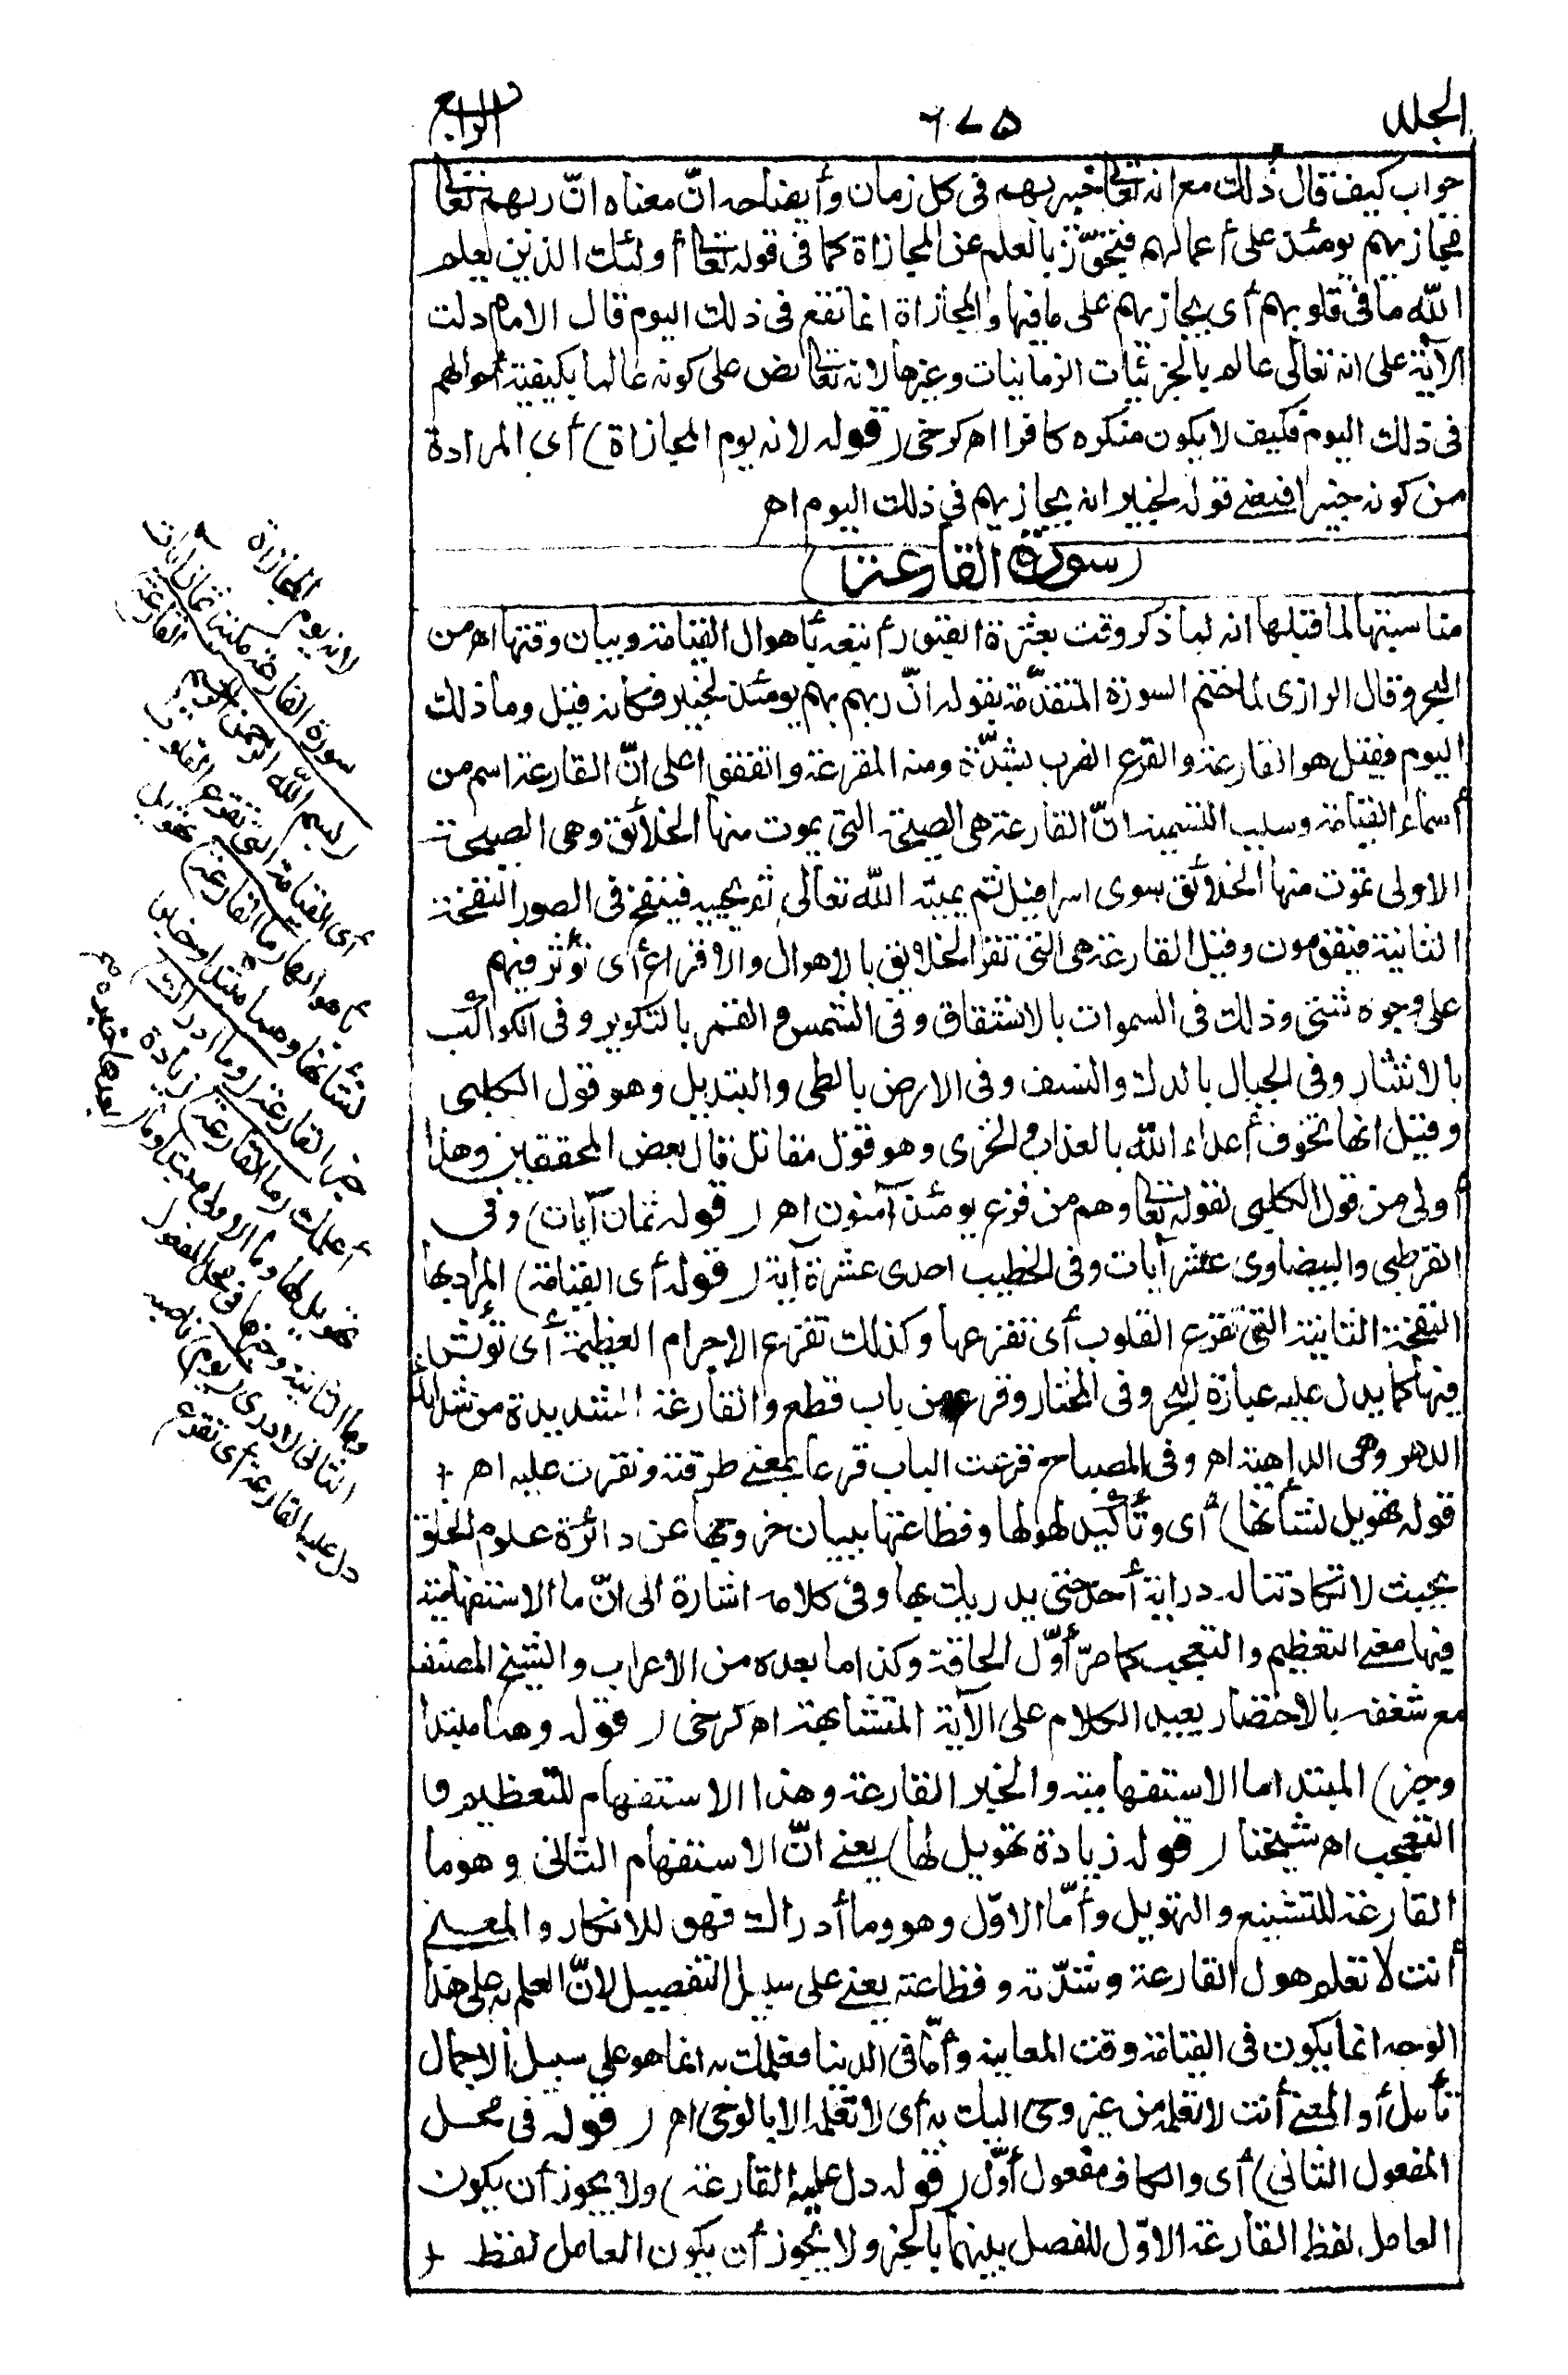 الجلد
٦٧٥
الرابع
جواب كيف قال ذلك مع انه تعالى خبير بهم فى كل زمان وأيضاحه انّ معناه انّ ربهم تعالى
مجازيهم يومئذ على أعمالهم فتجوّز بالعلم عن المجازاة كما فى قوله تعالى أولئك الذين يعلم
الله ما فى قلوبهم أى يجازيهم على ما فيها والمجازاة انما تقع فى ذلك اليوم قال الامام دلت
الآية على انه تعالى عالم بالجزئيات الزمانيات وغيرها لانه تعالى نص على كونه عالما بكيفية أحوالهم
فى ذلك اليوم فكيف لا يكون منكره كافرا اه كرخى (قوله لانه يوم المجازاة) أى المرادة
من كونه خبيرا فمعنى قوله لخبير انه يجازيهم فى ذلك اليوم اه
(سورة القارعة)
مناسبتها لما قبلها انه لما ذكر وقت بعثرة القبور أتبعه بأهوال القيامة وبيان وقتها اه من
البحر وقال الرازى لما ختم السورة المتقدّمة بقوله انّ ربهم بهم يومئذ لخبير فكأنه قيل وما ذلك
اليوم فقيل هو القارعة والقرع الضرب بشدّة ومنه المقرعة واتفقوا على انّ القارعة اسم من
أسماء القيامة وسبب التسمية انّ القارعة هى الصيحة التى يموت منها الخلائق وهى الصيحة
الاولى تموت منها الخلائق سوى اسرافيل ثم يميته الله تعالى ثم يحييه فينفخ فى الصور النفخة
الثانية فيقومون وقيل القارعة هى التى تقرع الخلايق بالاهوال والافزاع أى تؤثر فيهم
على وجوه شتى وذلك فى السموات بالانشقاق وفى الشمس والقمر بالتكوير وفى الكواكب
بالانتثار وفى الجبال بالدك والنسف وفى الارض بالطى والتبديل وهو قول الكلبى
وقيل انها تخوف أعداء الله بالعذاب والخزى وهو قول مقاتل قال بعض المحققين وهذا
أولى من قول الكلبى لقوله تعالى وهم من فزع يومئذ آمنون اه (قوله ثمان آيات) وفى
القرطبى والبيضاوى عشر آيات وفى الخطيب احدى عشرة آية (قوله أى القيامة) المراد بها
النفخة الثانية التى تقرع القلوب أى تفزعها وكذلك تقرع الاجرام العظيمة أى تؤثر
فيها كما يدل عليه عبارة البحر وفى المختار وقرع من باب قطع والقارعة الشديدة من شدائد
الدهر وهى الداهية اه وفى المصباح قرعت الباب قرعا بمعنى طرقته ونقرت عليه اه
قوله تهويل لشأنها) أى وتأكيد لهولها وفظاعتها ببيان خروجها عن دائرة علوم الخلق
بحيث لا تكاد تناله دراية أحد حتى يدريك بها وفى كلامه اشارة الى انّ ما الاستفهامية
فيها معنى التعظيم والتعجب كما مرّ أوّل الحاقة وكذا ما بعده من الاعراب والشيخ المصنف
مع شغفه بالاختصار يعيد الكلام على الآية المتشابهة اه كرخى (قوله وهما مبتدا
وخبر) المبتدا ما الاستفهامية والخبر القارعة وهذا الاستفهام للتعظيم و
التعجب اه شيخنا (قوله زيادة تهويل لها) يعنى انّ الاستفهام الثانى وهو ما
القارعة للتشنيع والتهويل وأمّا الاوّل وهو وما أدراك فهو للانكار والمعنى
أنت لا تعلم هول القارعة وشدّته وفظاعته يعنى على سبيل التفصيل لانّ العلم به على هذا
الوجه انما يكون فى القيامة وقت المعاينة وأمّا فى الدنيا فعلمك به انما هو على سبيل الاجمال
تأمل أو المعنى أنت لا تعلم من غير وحى اليك به أى لا تعلمه الا بالوحى اه (قوله فى محل
المفعول الثانى) أى والكاف مفعول أوّل (قوله دل عليه القارعة) ولا يجوز أن يكون
العامل لفظ القارعة الاوّل للفصل بينهما بالخبر ولا يجوز أن يكون العامل لفظ
لانه يوم المجازاة
سورة القارعة مكية ثمان آيات
بسم الله الرحمن الرحيم القارعة
أى القيامة التى تقرع القلوب
بأهوالها (ما القارعة) تهويل
لشأنها وهما مبتدا وخبر
خبر القارعة (وما أدراك)
أعلمك (ما القارعة) زيادة
تهويل لها وما الاولى مبتدا وما بعدها خبره
وما الثانية وخبرها فى محل المفعول
الثانى لادرى (يوم) ناصبه
دل عليه القارعة أى تقرع